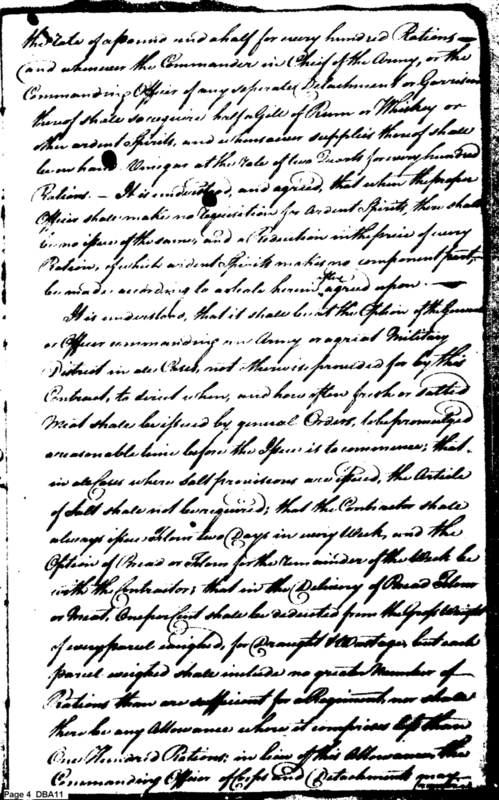 the rate of a pound and a half for every hundred Rations —
(and whenever the Commander in Chief of the Army, or the
Commanding Officer of any seperate Detachment or Garrison
thereof shall so require half a Gill of Rum or Whiskey or
other ardent Spirits, and whensoever supplies thereof shall
be on hand Vinegar at the rate of two Quarts for every hundred
Rations. — It is understood, and agreed, that when the proper
Officer shall make no requisition for Ardent Spirits, there shall
be no issue of the same, and a Reduction in the price of every
Ration, of which ardent Spirits makes no component part,
be made according to a scale herein after agreed upon. —
It is understood, that it shall be at the Option of the General
or Officer commanding an Army or a great Military
District in all Cases, not otherwise provided for by this
Contract, to direct when, and how often fresh or salted
Meat shall be issued by general Orders, to be promulged
a reasonable time before the Issue is to commence; that
in all Cases where Salt provisions are issued, the Article
of Salt shall not be required; that the Contractor shall
always issue Flour two Days in every Week, and the
Option of Bread or Flour for the remainder of the Week be
with the Contractor; that in the Delivery of Bread Flour
or Meat, One per Cent shall be deducted from the Gross Weight
of every parcel weighed, for Draught & Wastage, but each
parcel weighed shall include no greater Number of
Rations than are sufficient for a Regiment, nor shall
there be any Allowance where it comprises less than
One Hundred Rations; in lieu of this Allowance, the
Commanding Officer of Corps and Detachments may
Page 4 DBA11